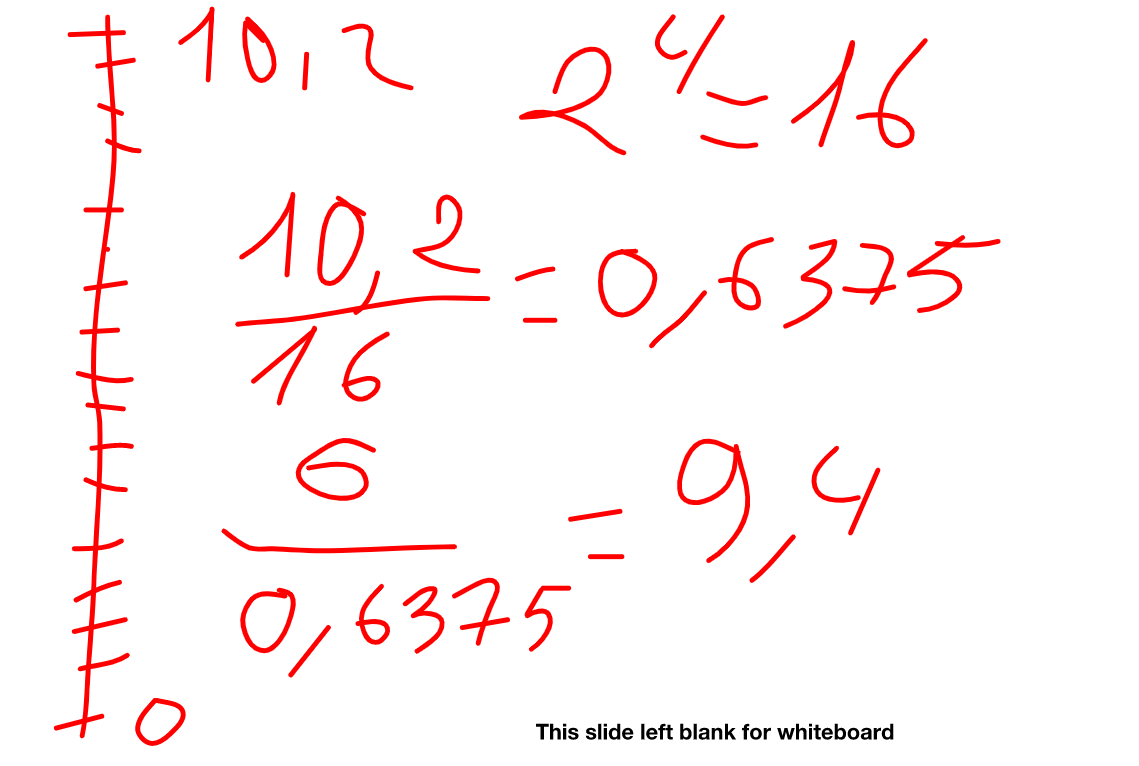 10,2
2^4 = 16
10,2
16
= 0,6375
6
0,6375
= 9,4
0
This slide left blank for whiteboard